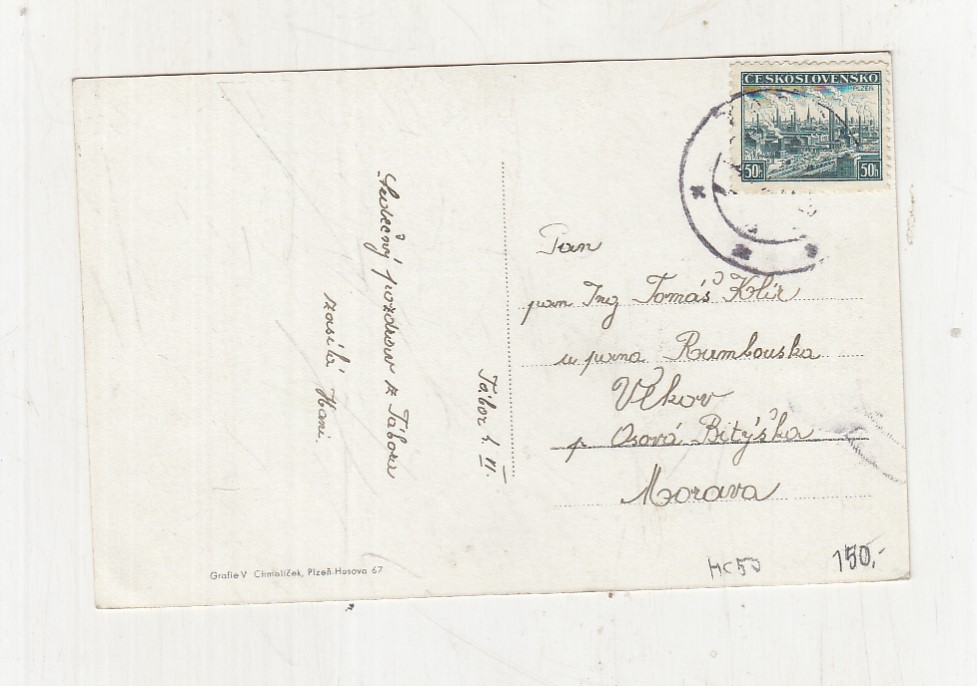 ČESKOSLOVENSKO
PLZEŇ
50h 50h
Srdečný pozdrav z Tábora
zasílá Hani.
Tábor 4. VI.
Pan
pan Ing Tomáš Klír
u pana Rumbouska
Vlkov
p Osová Bitýška
Morava
Grafie V Chmelíček, Plzeň-Husova 67
HC50
150,-